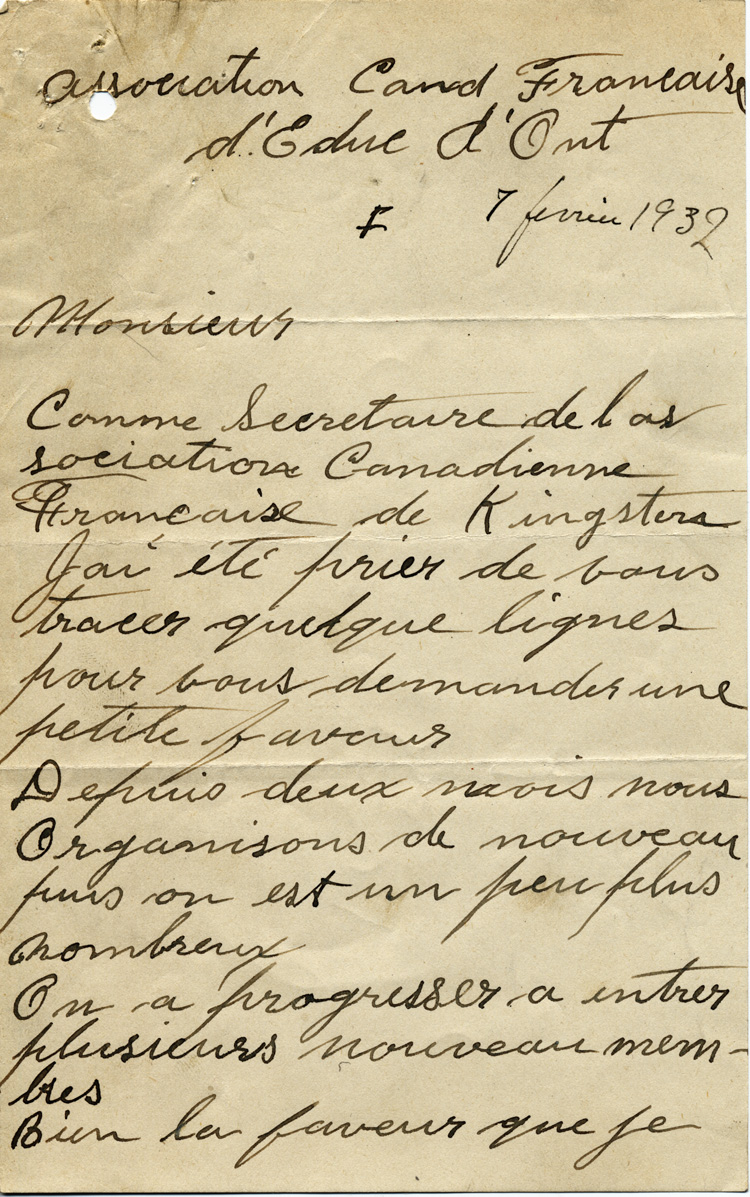 Association Cand Francaise
d'Educ d'Ont
I 7 fevrier 1932
Monsieur
Comme Secretaire de l as
sociation Canadienne
Francaise de Kingston
J'ai été prier de vous
tracer quelque lignes
pour vous demander une
petite faveur
Depuis deux mois nous
Organisons de nouveau
puis on est un peu plus
nombreux
On a progresser a entrer
plusieurs nouveau mem-
bres
Bien la faveur que je